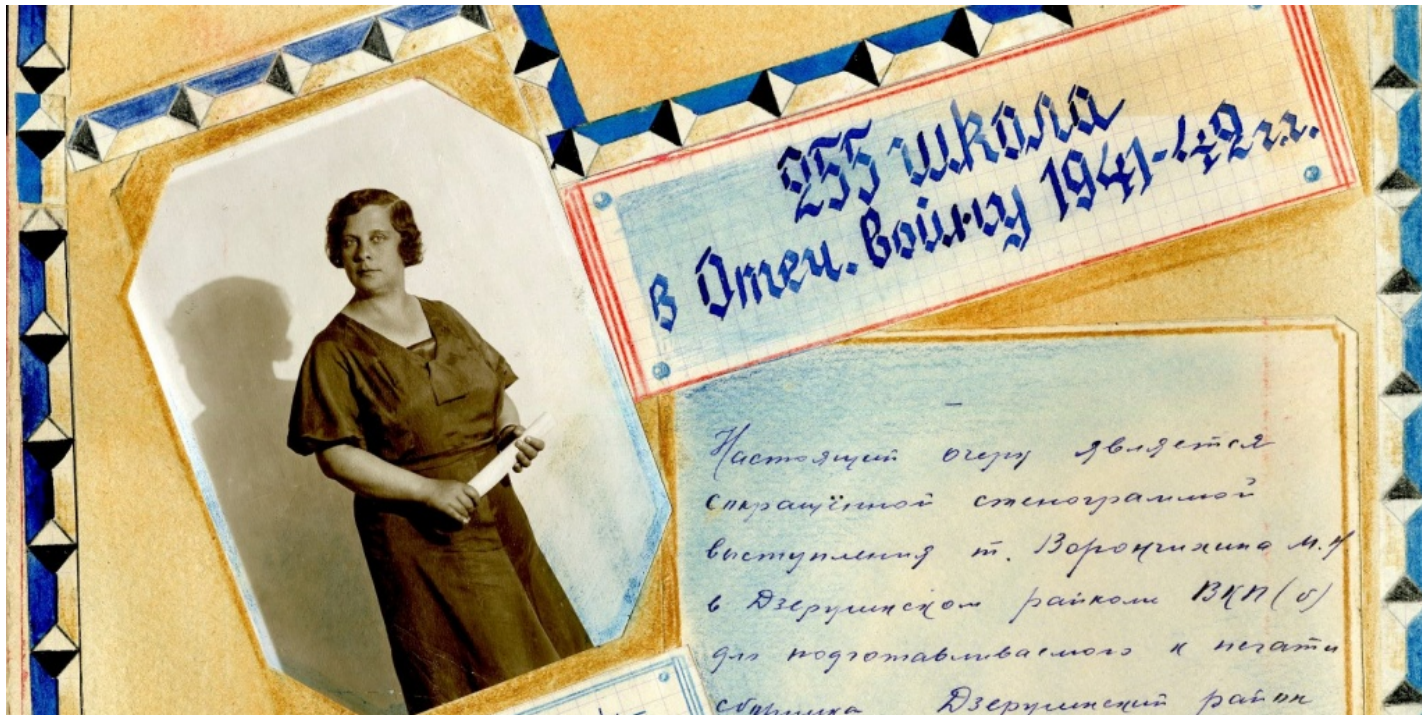 255 школа
в Отеч. войну 1941-42 гг.
Настоящий очерк является
сокращённой стенограммой
выступления т. Ворончихина М.И
в Дзержинском райкоме ВКП(б)
для подготавливаемого к печати
сборника Дзержинский район